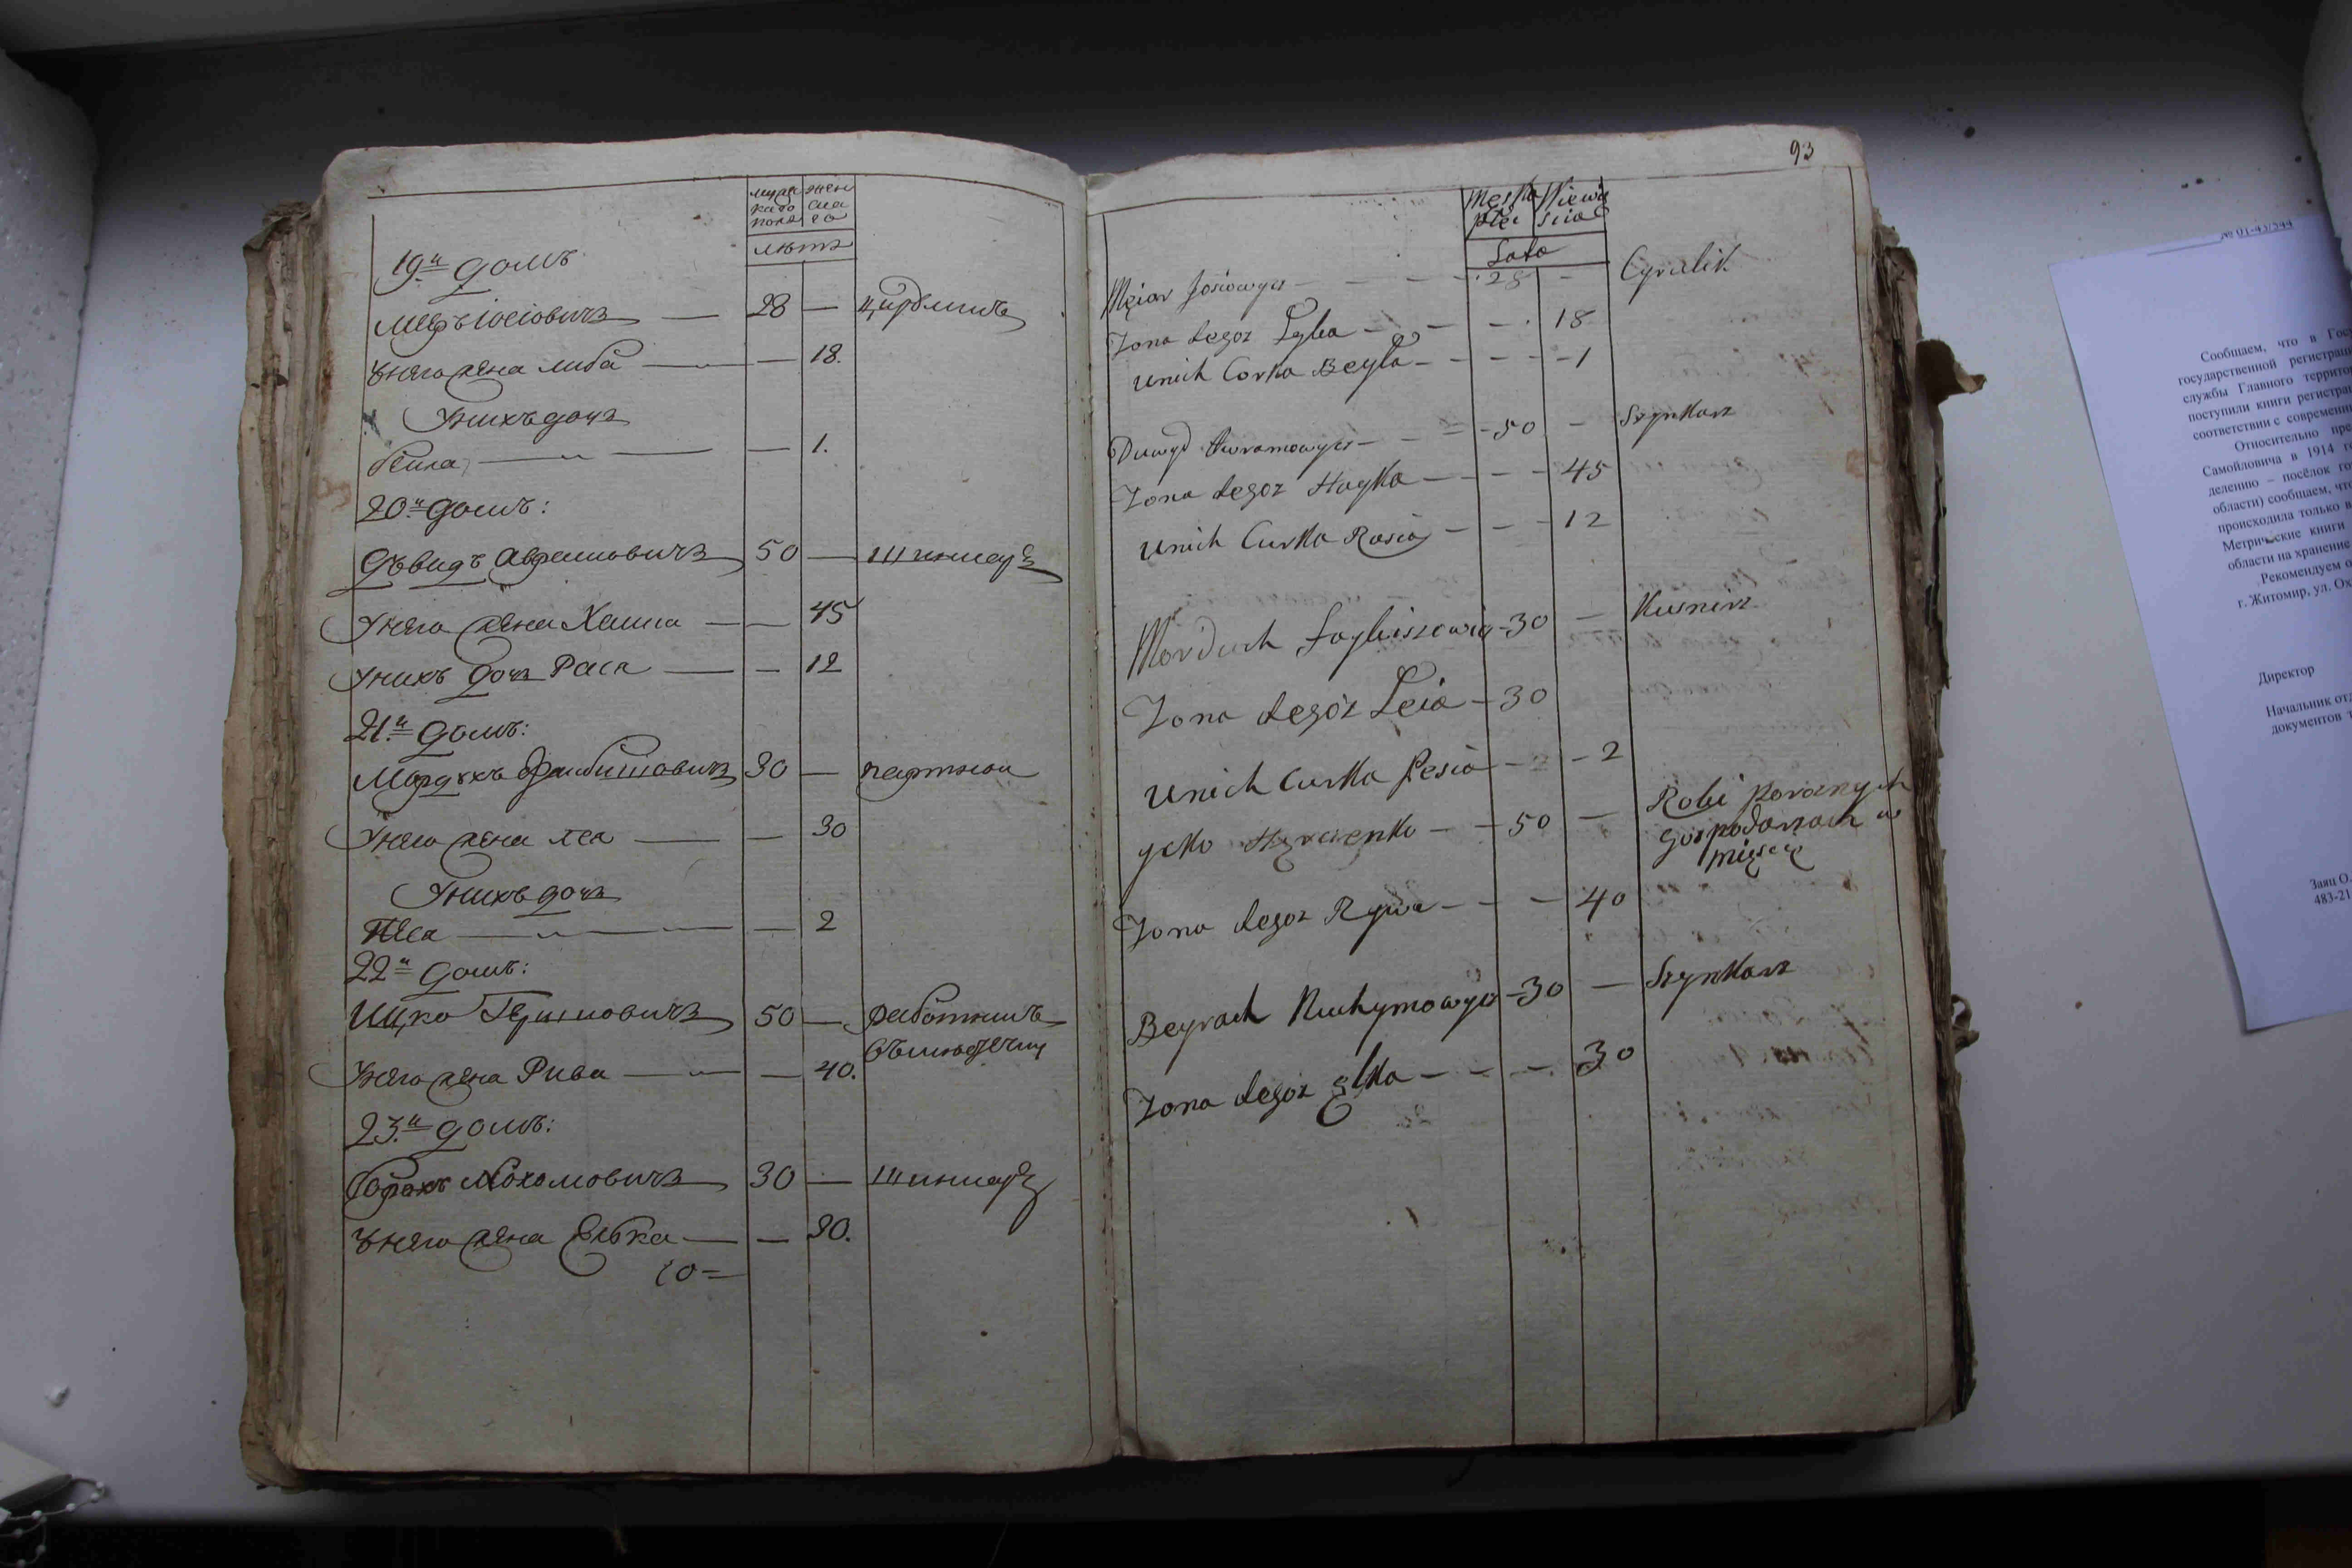 мужеска женска
каго
пола го
лѣтъ
19.й домъ
Меѣръ Іосіовичъ — 28 — цѣрѣлникъ
ѣ него жена Либа — — 18.
У нихъ дочь
беила — — 1.
20.й домъ:
Дѣвидъ Аврамовичъ 50 — шинкаръ
У него жена Хаика — — 45
У нихъ дочь Рася — — 12
21.й домъ:
Мордухъ Фаибишовичъ 30 —
У него жена леа — — 30
У нихъ дочь
Песа — — 2
22й домъ:
Ицко 50 — работникъ
У него жена Рива — — 40.
23.й домъ:
Борохъ Нохомовичъ 30 — шинкаръ
ѣ него жена Елка — — 30.
93
Męska Niewie
płci scia
Lata
Meiar Josiowycz — — — 28 — Cyrulik
Zona Jegoz Lyba — — — 18
Unich Corka Beyla — — — 1
Dawyd Awramowycz — — 50 — Szynkarz
Zona Jegoz Hayka — — — 45
Unich Curka Rasia — — — 12
Morduch Faybiszowicz 30 — Kusnirz
Zona Jegoz Leia — 30
Unich Curka Pesia — — 2
ycko — — 50 — Robi
gospodarzach w
Zona Jegoz Rywa — — — 40
Beyrach Nuchymowycz 30 — Szynkarz
Zona Jegoz Elka — — — 30
№ 01-43/544
Сообщаем, что в Гос
государственной регистрац
службы Главного территор
поступили книги регистрац
соответствии с современн
Относительно пре
Самойловича в 1914 г
делению – посёлок го
области) сообщаем, что
происходила только в
Метрические книги
области на хранение
Рекомендуем о
г. Житомир, ул. Ох
Директор
Начальник отд
документов т
Заяц О.
483-21